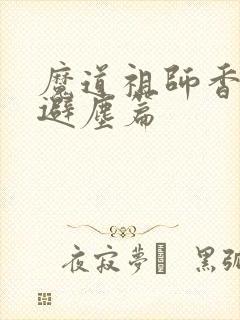 魔道祖師香
避塵篇
夜寂夢 黑弧